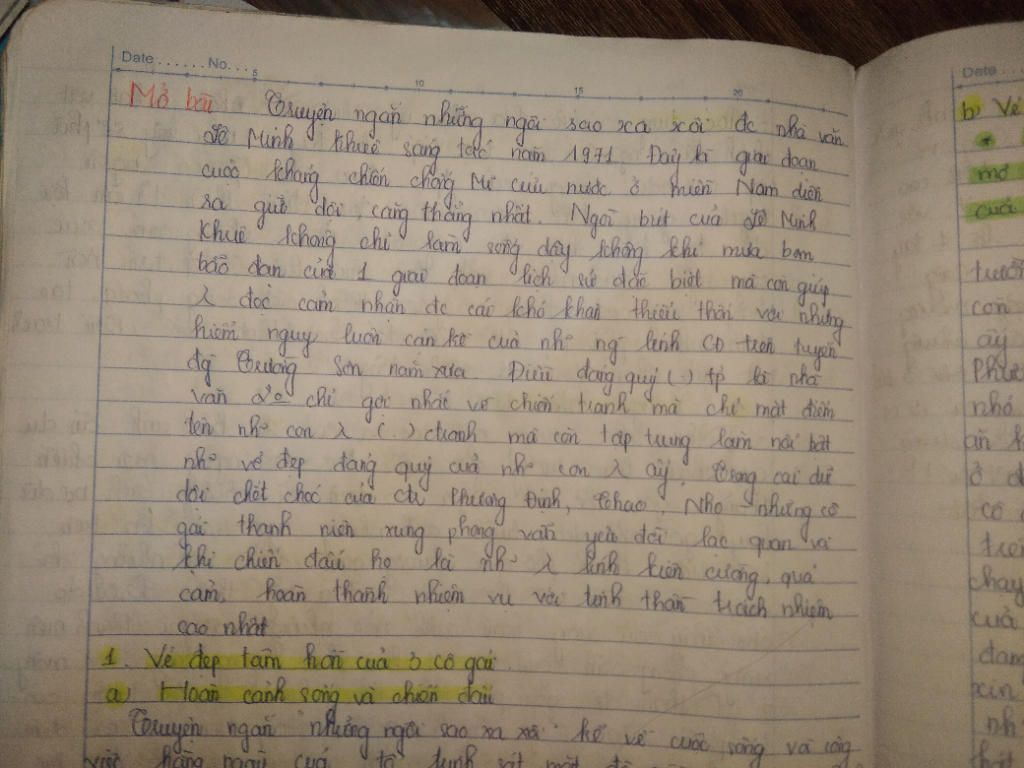 Date ...... No. ...
5 10 15 20
Mở bài Truyện ngắn những ngôi sao xa xôi đc nhà văn
Lê Minh Khuê sáng tác năm 1971 Đây là giai đoạn
cuộc kháng chiến chống Mĩ cứu nước ở miền Nam diễn
ra giữ dội, căng thẳng nhất. Ngòi bút của Lê Minh
Khuê không chỉ làm sống dậy không khí mưa bom
bão đạn của 1 giai đoạn lịch sử đặc biệt mà còn giúp
λ đọc cảm nhận đc các khó khăn thiếu thốn với những
hiểm nguy luôn cận kề của nh~ ng lính CD trên tuyến
đg Trường Sơn năm xưa Điều đáng quý (.) tp là nhà
văn chỉ gợi nhắc về chiến tranh mà chỉ mặt điểm
tên nh~ con λ (.) ctranh mà còn tập trung làm nổi bật
nh~ vẻ đẹp đáng quý của nh~ con λ ấy. Trong cái dữ
dội chốt chóc của ctr Phương Định, Thao, Nho những cô
gái thanh niên xung phong vẫn yêu đời lạc quan và
khi chiến đấu họ là nh~ λ lính kiên cường, quả
cảm, hoàn thành nhiệm vụ với tinh thần trách nhiệm
cao nhất
1. Vẻ đẹp tâm hồn của 3 cô gái
a) Hoàn cảnh sống và chiến đấu
Truyện ngắn "những ngôi sao xa xôi" kể về cuộc sống và công
việc hằng ngày của tổ trinh sát mặt đ
Date
b) Vẻ
*
mơ
của
tuổi
con
ấy
Phươ
nhó
ăn
ở
có
trên
chạy
của
đang
xin
nh